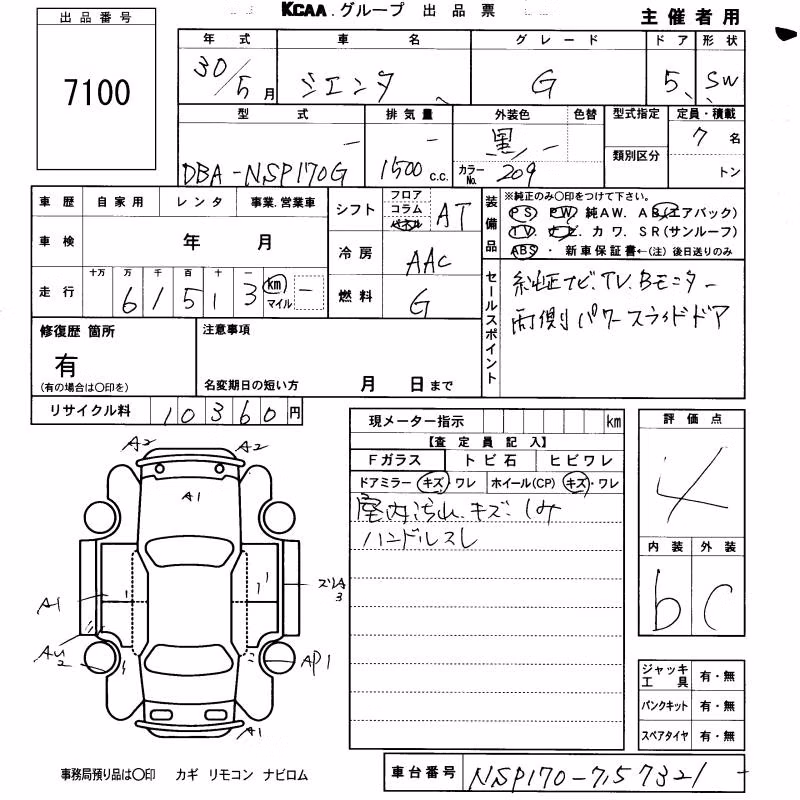 KCAA.グループ 出品票
主催者用
出品番号
7100
年式 車名 グレード ドア 形状
30/5月 シエンタ G 5 SW
型式 排気量 外装色 色替 型式指定 定員・積載
DBA-NSP170G 1500c.c. 黒 カラーNo. 209 類別区分 7名
トン
車歴 自家用 レンタ 事業.営業車
車検 年 月
走行 十万 万 千 百 十 一
61513 km マイル
シフト フロア コラム パネル AT
冷房 AAC
燃料 G
装備品
※純正のみ〇印をつけて下さい。
PS PW 純AW. AB(エアバック)
TV. ナビ. カワ. SR(サンルーフ)
ABS・ 新車保証書←(注)後日送りのみ
セールスポイント
純正ナビ.TV.Bモニター
両側パワースライドドア
修復歴 箇所
有
(有の場合は〇印を)
注意事項
名変期日の短い方 月 日まで
リサイクル料 10360円
現メーター指示 km
【査定員記入】
Fガラス トビ石 ヒビワレ
ドアミラー キズ・ワレ ホイール(CP) キズ・ワレ
室内汚れ.キズ.シミ
ハンドルスレ
評価点
4
内装 外装
b C
A2 A2
A1
A1
ズレA3
AU2
AP1
A1
ジャッキ工具 有・無
パンクキット 有・無
スペアタイヤ 有・無
事務局預り品は〇印 カギ リモコン ナビロム
車台番号 NSP170-7157321